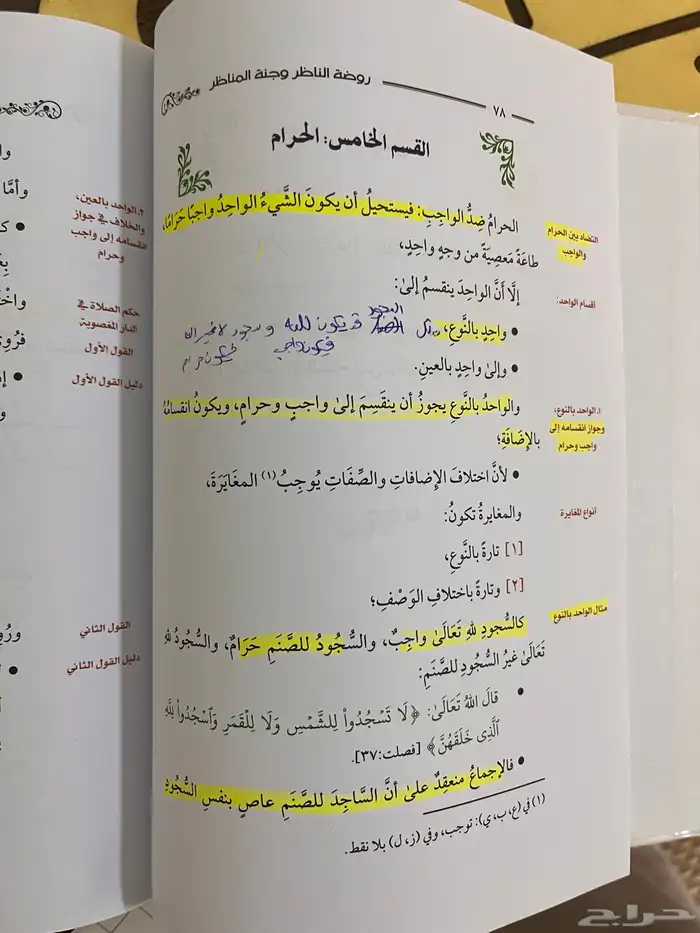 روضة الناظر وجنة المناظر
٧٨
القسم الخامس: الحرام
الحرامُ ضِدُّ الواجِبِ: فيستحيلُ أن يكونَ الشَّيءُ الواحِدُ واجبًا حَرَامًا،
طاعَةً مَعصِيَةً من وجهٍ واحِدٍ،
إلَّا أنَّ الواحِدَ ينقسمُ إلىٰ:
• واحِدٍ بالنَّوعِ،
السجود
قد يكون لله
فيكون واجب
فيكون حرام
• وإلىٰ واحِدٍ بالعينِ.
والواحدُ بالنَّوعِ يجوزُ أن ينقَسِمَ إلىٰ واجبٍ وحرامٍ، ويكونُ انقسامُهُ
بالإضَافَةِ؛
• لأنَّ اختلافَ الإضافاتِ والصِّفَاتِ يُوجِبُ(١) المغَايَرَةَ،
والمغايرةُ تكونُ:
[١] تارةً بالنَّوعِ،
[٢] وتارةً باختلافِ الوَصْفِ؛
كالسُّجودِ للهِ تَعَالَىٰ واجِبٌ، والسُّجُودُ للصَّنَمِ حَرَامٌ، والسُّجُودُ للهِ
تَعَالَىٰ غيرُ السُّجُودِ للصَّنَمِ:
• قالَ اللهُ تَعَالَىٰ: ﴿لَا تَسْجُدُواْ لِلشَّمْسِ وَلَا لِلْقَمَرِ وَٱسْجُدُواْ لِلَّهِ
ٱلَّذِى خَلَقَهُنَّ﴾ [فصلت:٣٧].
• فالإجماعُ منعقِدٌ علىٰ أنَّ السَّاجِدَ للصَّنَمِ عاصٍ بنفسِ السُّجُودِ
(١) في (ع، ب، ي): توجب، وفي (ز، ل) بلا نقط.
التضاد بين الحرام
والواجب
أقسام الواحد:
١. الواحد بالنوع،
وجواز انقسامه إلى
واجب وحرام
أنواع المغايرة
مثال الواحد بالنوع
٢. الواحد بالعين،
والخلاف في جواز
انقسامه إلى واجب
وحرام
حكم الصلاة في
الدار المغصوبة
القول الأول
دليل القول الأول
القول الثاني
دليل القول الثاني
وأمَّا
حراج